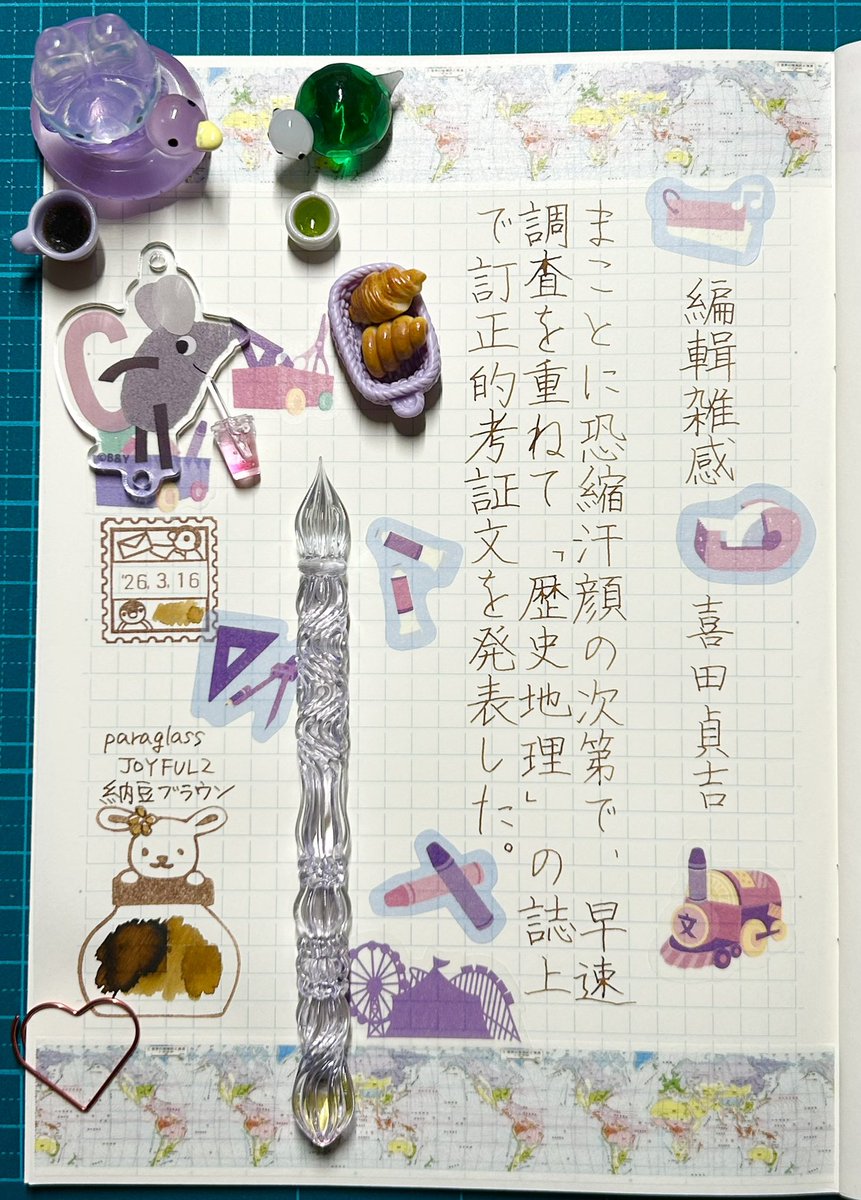 編輯雑感 喜田貞吉
まことに恐縮汗顔の次第で、早速
調査を重ねて「歴史地理」の誌上
で訂正的考証文を発表した。
©B&Y
'26.3.16
paraglass
JOYFUL2
納豆ブラウン
文